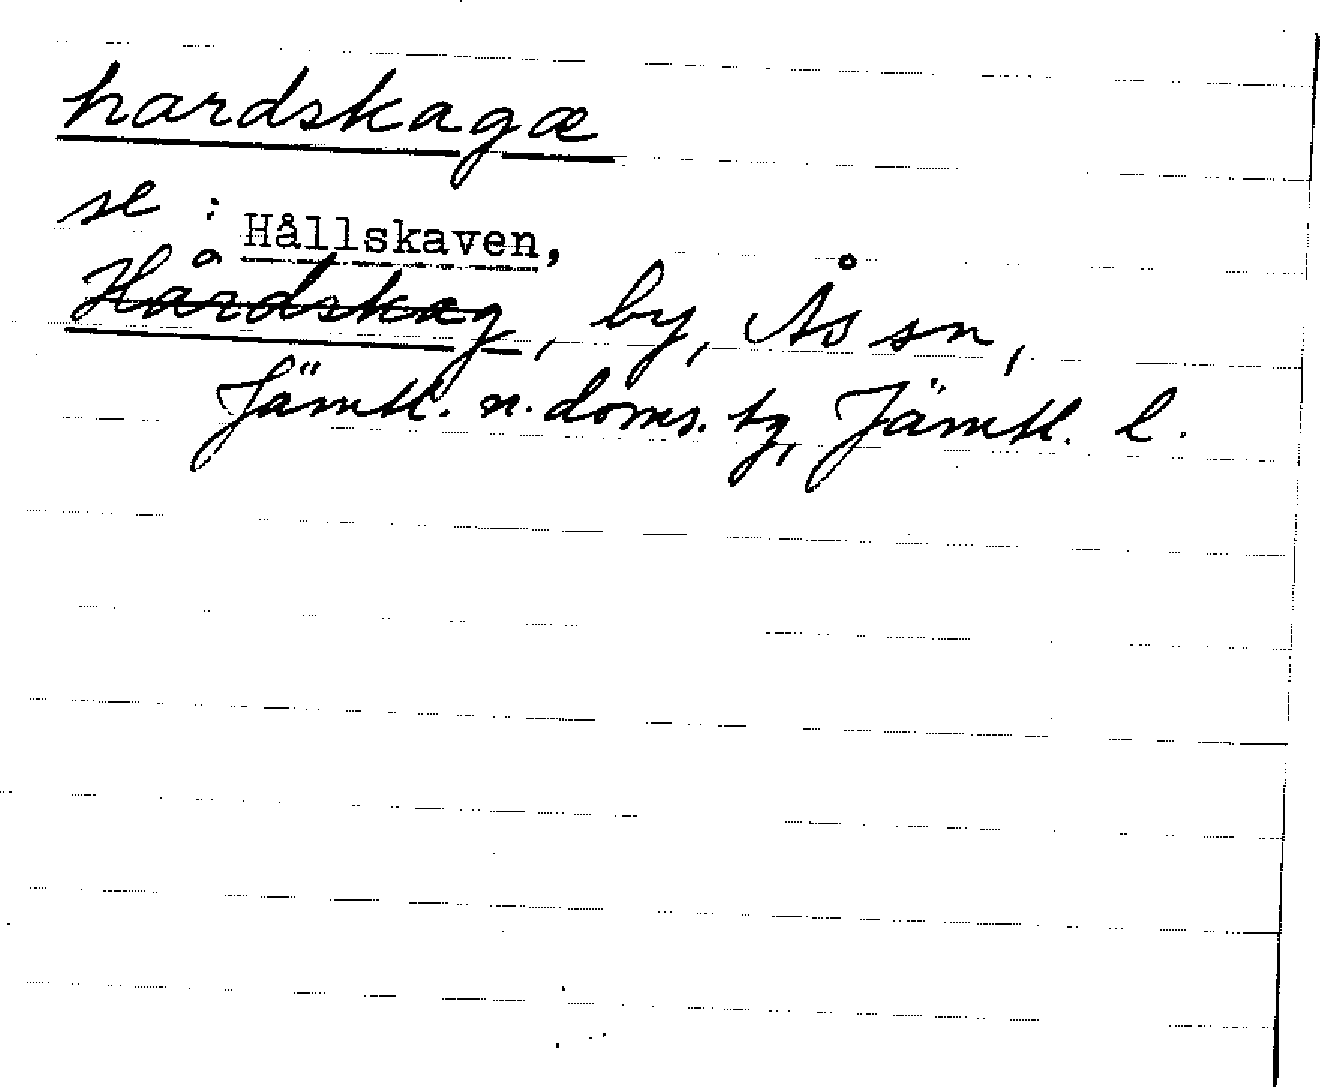 hardskagæ
se : Hållskaven,
Hårdskag, by, Ås sn,
Jämtl. n. doms. tg, Jämtl. l.